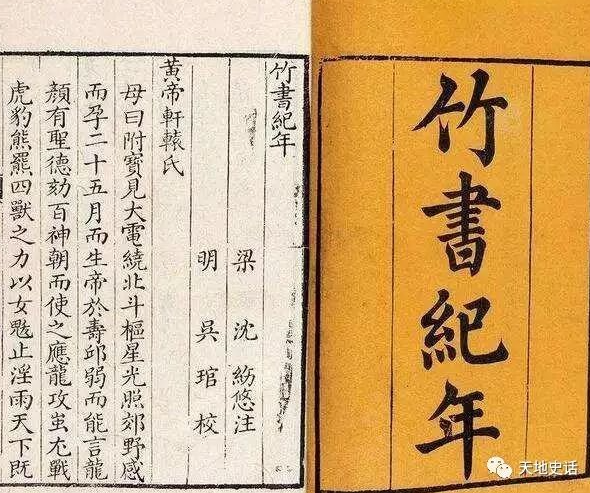 竹書紀年
竹書紀年
梁 沈 紛悠注
明 吳 琯 校
黃帝軒轅氏
母曰附寶見大電繞北斗樞星光照郊野感
而孕二十五月而生帝於壽邱弱而能言龍
顏有聖德劾百神朝而使之應龍攻蚩尤戰
虎豹熊羆四獸之力以女魃止淫雨天下既
天地史话